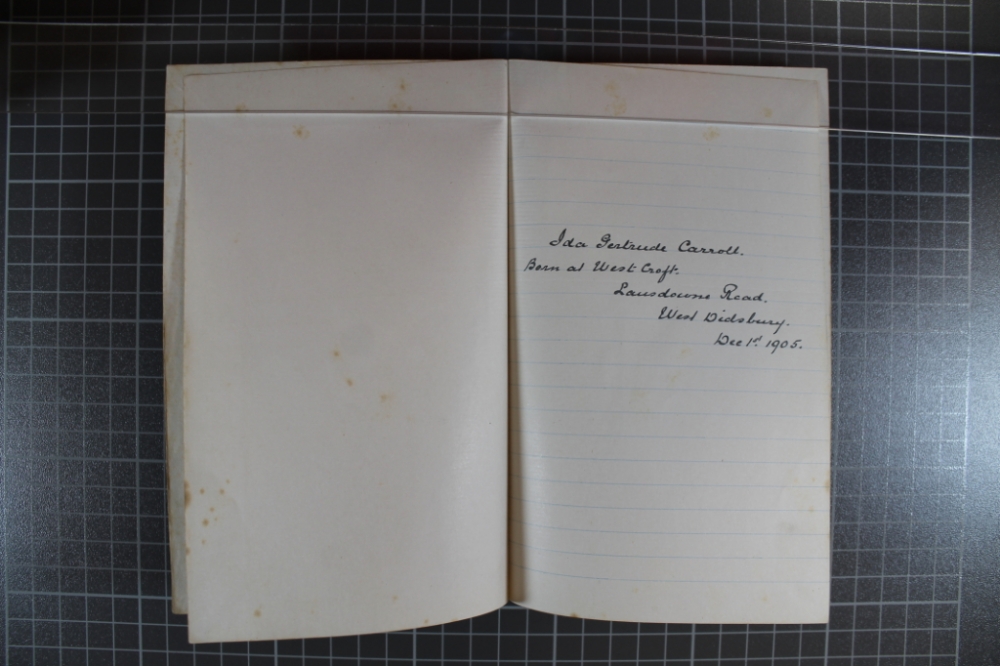 Ida Gertrude Carroll.
Born at West Croft.
Lansdowne Road.
West Didsbury.
Dec 1st 1905.